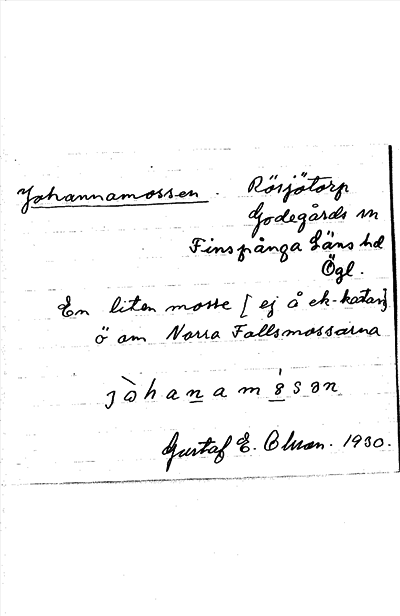 Johannamossen. Rösjötorp
Godegårds sn
Finspånga Läns hd
Ögl.
En liten mosse [ej å ek-kartan]
ö om Norra Fallsmossarna
jòhanamósən
Gustaf E. Olsson. 1930.